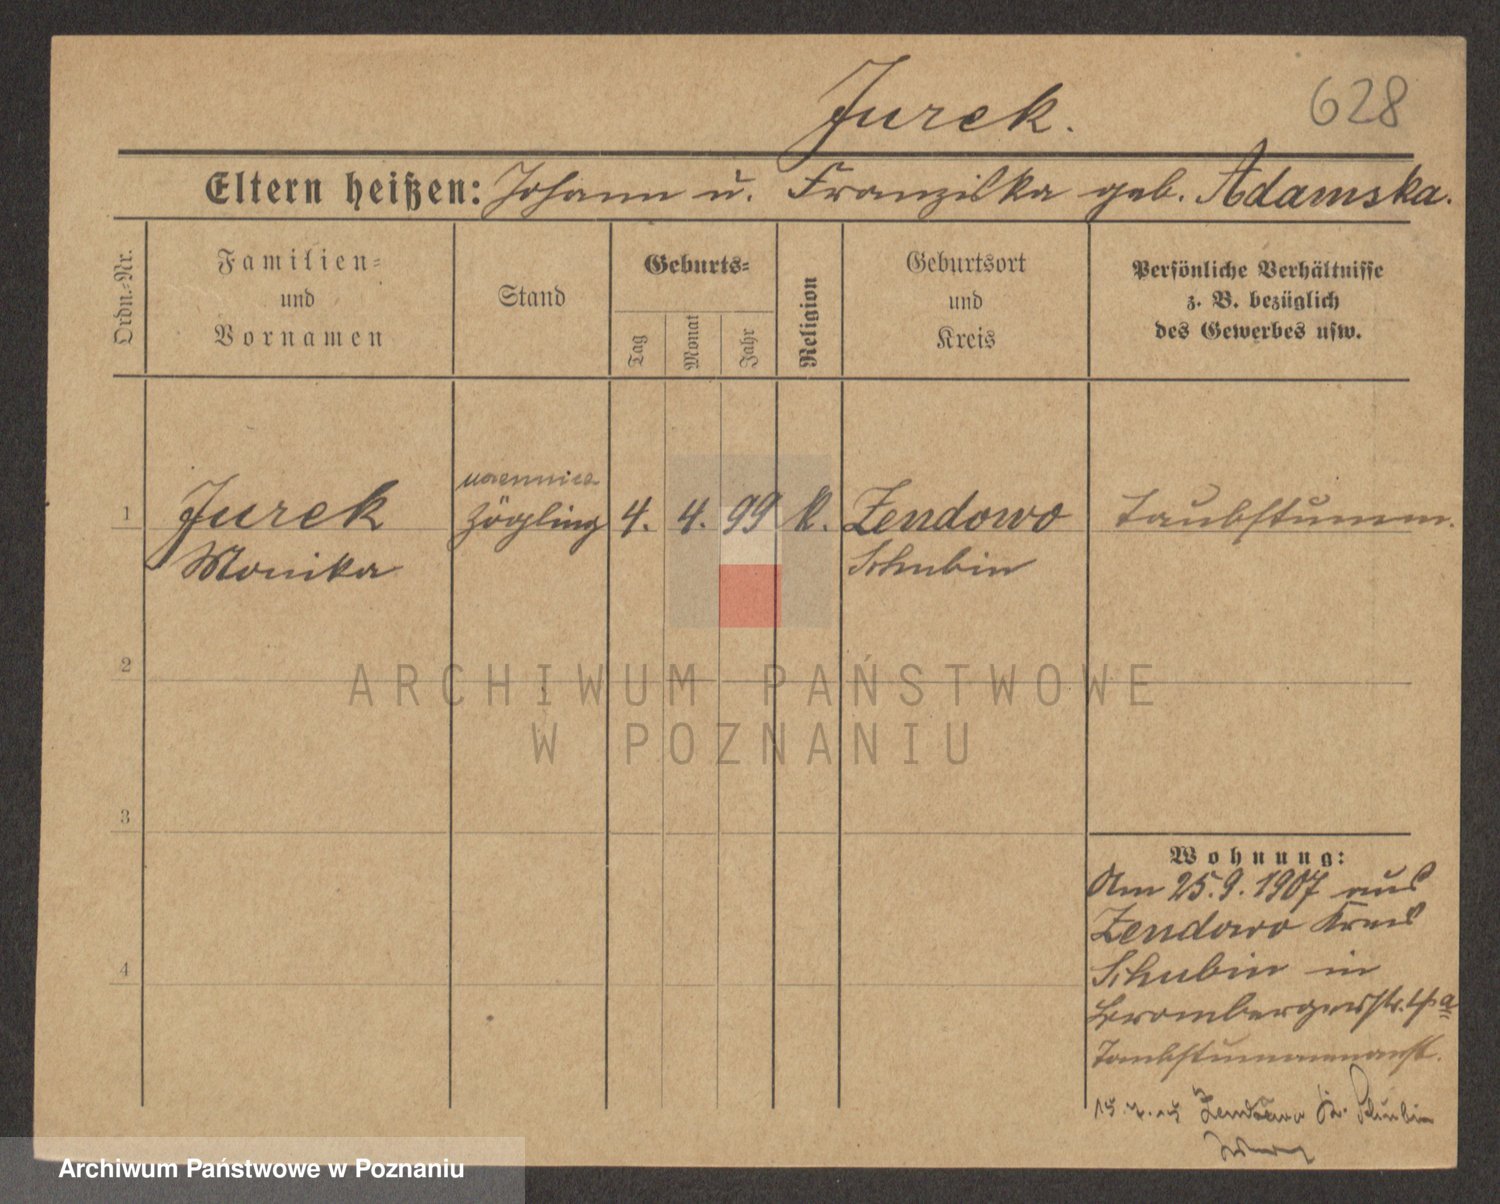 Jurek.
628
Eltern heißen: Johann u. Franziska geb. Adamska.
Ordn.-Nr.
Familien-
und
Vornamen
Stand
Geburts-
Tag
Monat
Jahr
Religion
Geburtsort
und
Kreis
Persönliche Verhältnisse
z. B. bezüglich
des Gewerbes usw.
uczennica
1 Jurek Zögling 4. 4. 99 K. Zendowo Taubstumm.
Monika Schubin
2
ARCHIWUM PAŃSTWOWE
W POZNANIU
3
Wohnung:
Am 25.9.1907 aus
Zendowo Kreis
4
Schubin in
Brombergerstr. 4a
Taubstummenanst.
Zendowo Kr. Schubin
Archiwum Państwowe w Poznaniu